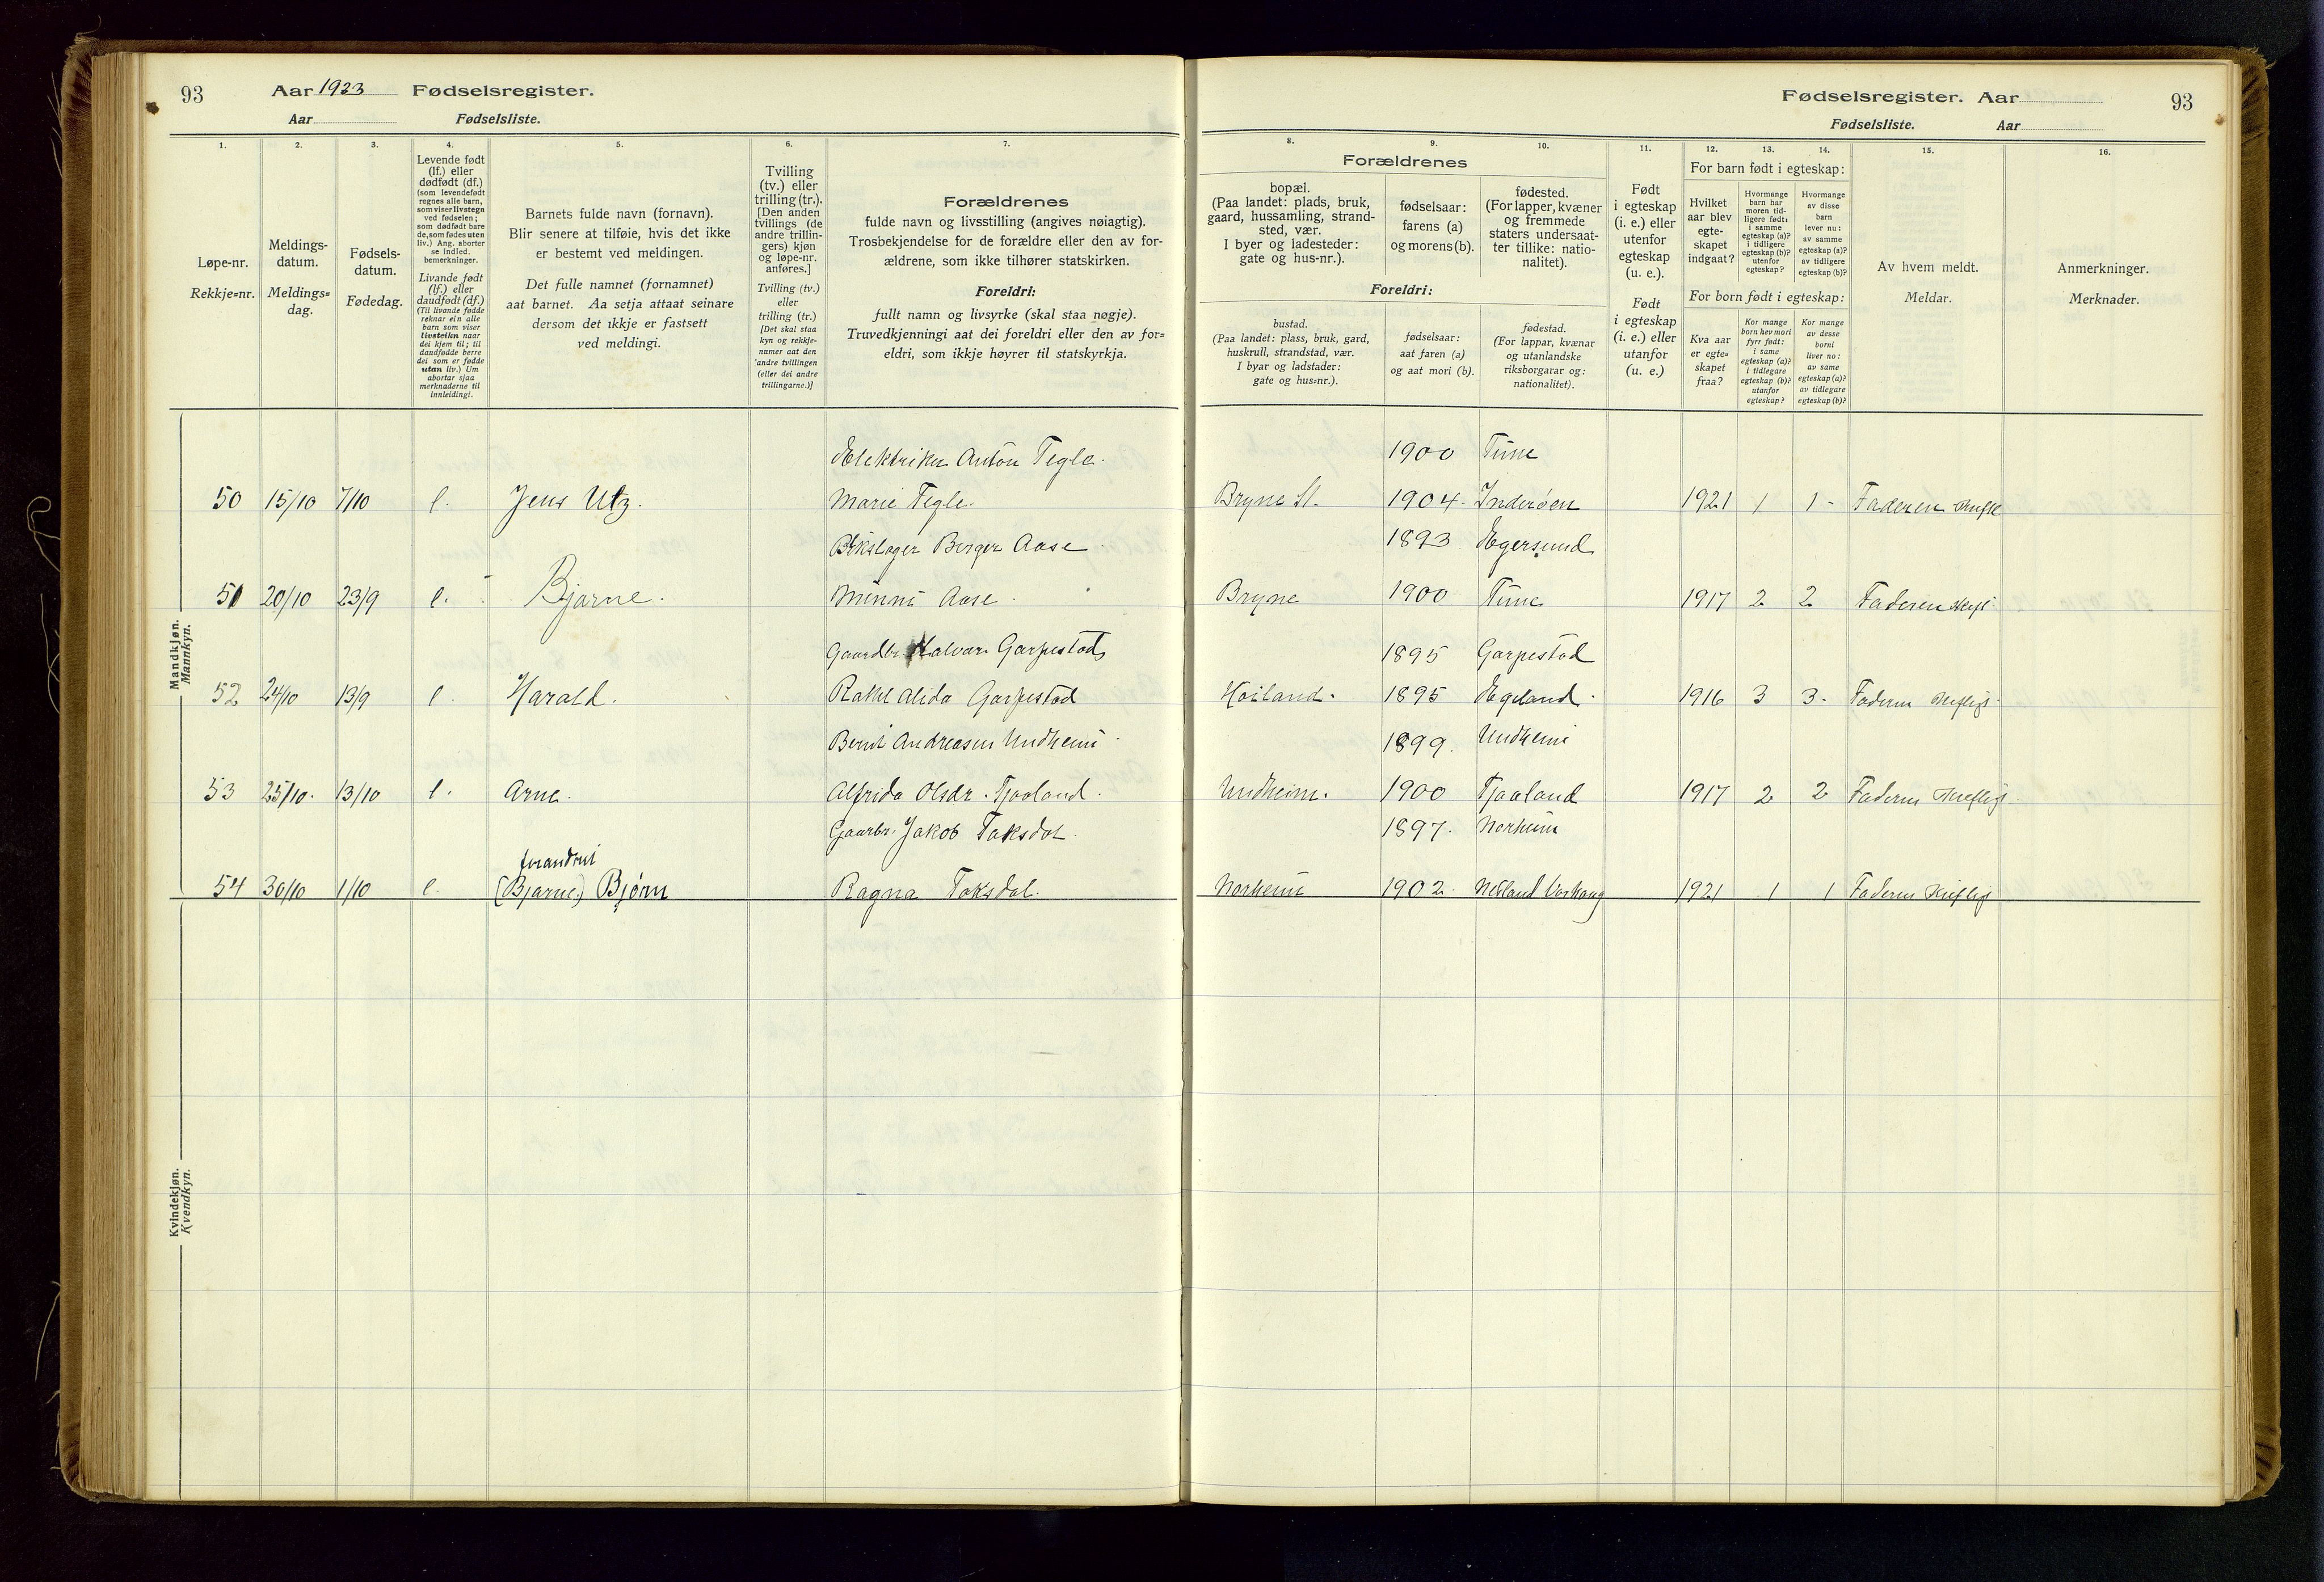 93 Aar 1923 Fødselsregister.
Aar Fødselsliste.
Fødselsregister. Aar 93
Fødselsliste. Aar
1. 2. 3. 4. 5. 6. 7. 8. 9. 10. 11. 12. 13. 14. 15. 16.
Løpe-nr.
Rekkje=nr.
Meldings-
datum.
Meldings=
dag.
Fødsels-
datum.
Fødedag.
Levende født
(lf.) eller
dødfødt (df.)
(som levendefødt
regnes alle barn,
som viser livstegn
ved fødselen;
som dødfødt bare
de, som fødes uten
liv.) Ang. aborter
se indled.
bemerkninger.
Livande født
(lf.) eller
daudfødt (df.)
(Til livande fødde
reknar ein alle
barn som viser
livsteikn naar
dei kjem til; til
daudfødde berre
dei som er fødde
utan liv.) Um
abortar sjaa
merknaderne til
innleidingi.
Barnets fulde navn (fornavn).
Blir senere at tilføie, hvis det ikke
er bestemt ved meldingen.
Det fulle namnet (fornamnet)
aat barnet. Aa setja attaat seinare
dersom det ikkje er fastsett
ved meldingi.
Tvilling
(tv.) eller
trilling (tr.).
[Den anden
tvillings (de
andre trillin-
gers) kjøn
og løpe-nr.
anføres.]
Tvilling (tv.)
eller
trilling (tr.)
[Det skal staa
kyn og rekkje-
numer aat den
andre tvillingen
(eller dei andre
trillingarne.)]
Forældrenes
fulde navn og livsstilling (angives nøiagtig).
Trosbekjendelse for de forældre eller den av for-
ældrene, som ikke tilhører statskirken.
Foreldri:
fullt namn og livsyrke (skal staa nøgje).
Truvedkjenningi aat dei foreldri eller den av for=
eldri, som ikkje høyrer til statskyrkja.
Forældrenes
bopæl.
(Paa landet: plads, bruk,
gaard, hussamling, strand-
sted, vær.
I byer og ladesteder:
gate og hus-nr.).
fødselsaar:
farens (a)
og morens (b).
fødested.
(For lapper, kvæner
og fremmede
staters undersaat-
ter tillike: natio-
nalitet).
Foreldri:
bustad.
(Paa landet: plass, bruk, gard,
huskrull, strandstad, vær.
I byar og ladstader:
gate og hus=nr.).
fødselsaar:
aat faren (a)
og aat mori (b).
fødestad.
(For lappar, kvænar
og utanlandske
riksborgarar og:
nationalitet).
Født
i egteskap
(i. e.) eller
utenfor
egteskap
(u. e.).
Født
i egteskap
(i. e.) eller
utanfor
(u. e.)
For barn født i egteskap:
Hvilket
aar blev
egte-
skapet
indgaat?
Hvormange
barn har
moren tid-
ligere født:
i samme
egteskap (a)?
i tidligere
egteskap (b)?
utenfor
egteskap?
Hvormange
av disse
barn
lever nu:
av samme
egteskap (a)?
av tidligere
egteskap (b)?
For born født i egteskap:
Kva aar
er egte=
skapet
fraa?
Kor mange
born hev mori
fyrr født:
i same
egteskap (a)?
i tidlegare
egteskap (b)?
utanfor
egteskap?
Kor mange
av desse
borni
liver no:
av same
egteskap (a)?
av tidlegare
egteskap (b)?
Av hvem meldt.
Meldar.
Anmerkninger.
Merknader.
Mandkjøn.
Mannkyn.
Elektriker Anton Tegle. 1900 Time
50 15/10 7/10 l. Jens Utz. Marie Tegle. Bryne St. 1904. Inderøen 1921 1 1 Faderen
Berger Aase 1893 Egersund
51 20/10 23/9 l. Bjarne. Minni Aase Bryne 1900 Time 1917 2 2 Faderen
Gaardbr. Halvar Garpestad 1895 Garpestad
52 24/10 13/9 l. Harald. Rakel Alida Garpestad Høiland. 1895 Egeland. 1916 3 3. Faderen
Berint Andreasen Undheim 1899. Undheim
53 25/10. 13/10 l. Arne. Alfrida Olsdr. Tjaaland. Undheim. 1900 Tjaaland 1917 2 2 Faderen
Gaarbr. Jakob Taksdal. 1897. Norheim
forandret
54 30/10 1/10 l. (Bjarne.) Bjørn Ragna Taksdal. Norheim 1902 Varhaug 1921 1 1 Faderen
Kvindekjøn.
Kvendkyn.